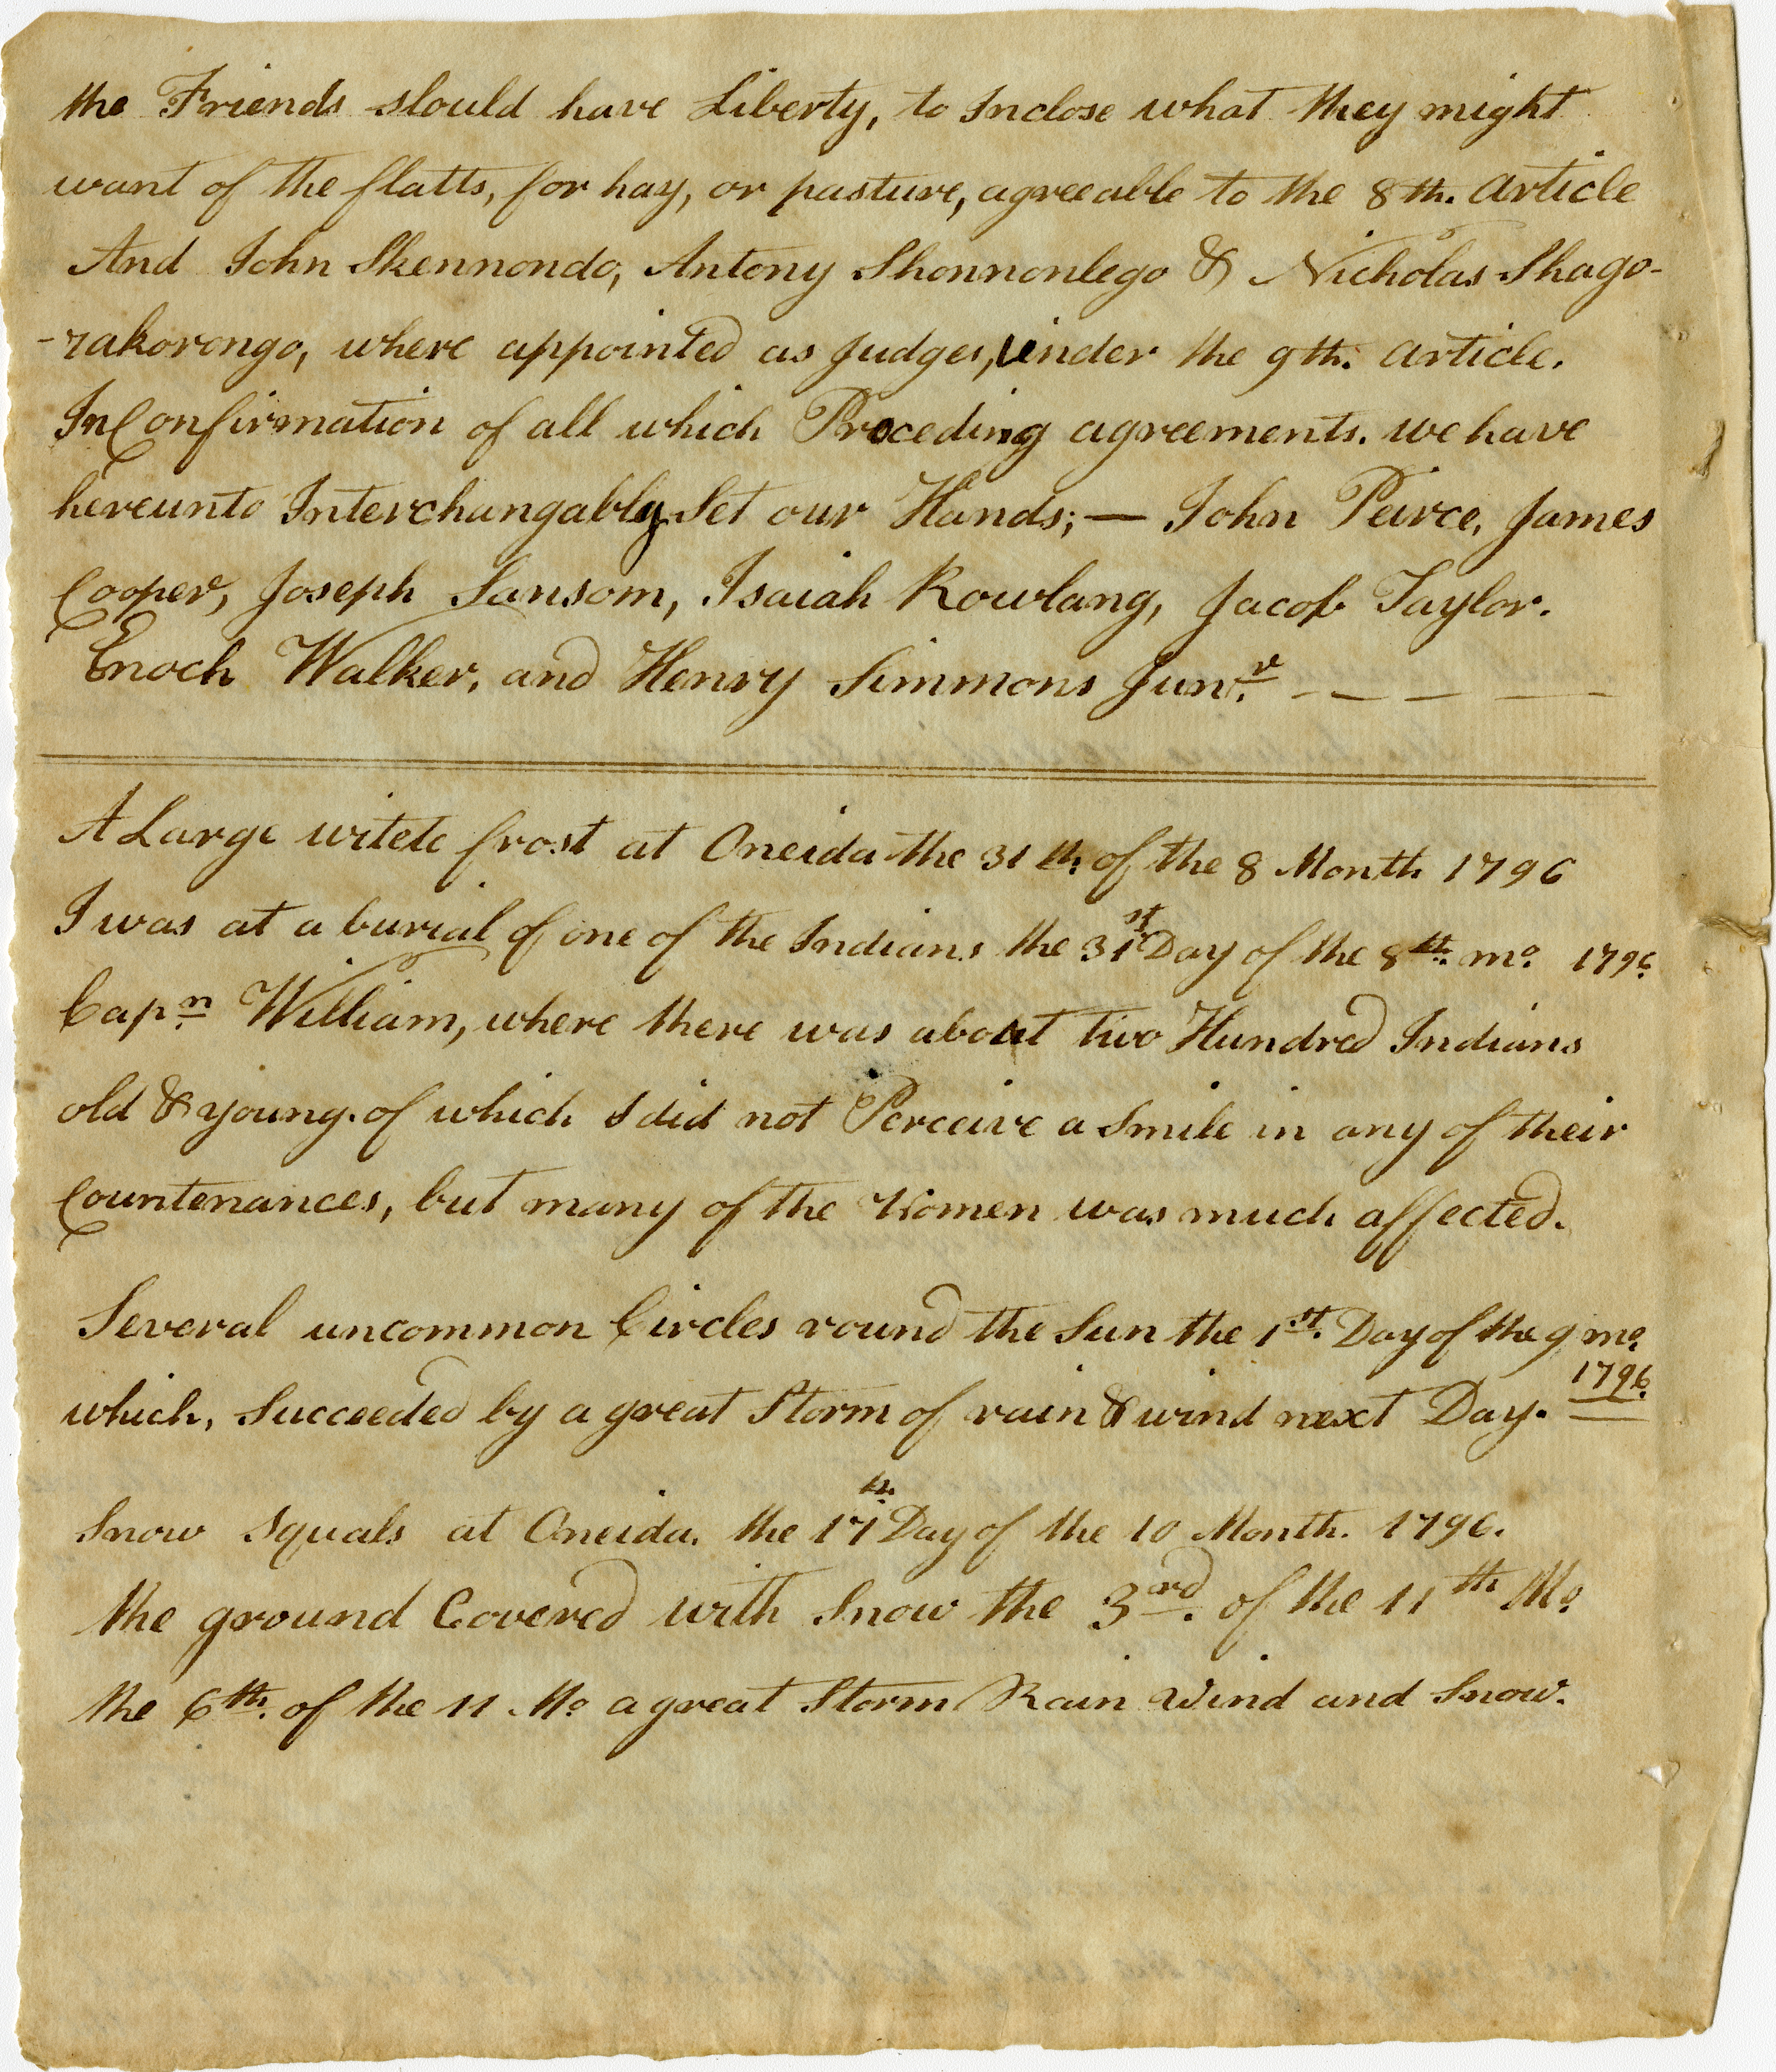 the Friends slould have Liberty, to Inclose what they might
want of the flatts, for hay, or pasture, agreeable to the 8th. article
And John Skennondo, Antony Shonnonlego & Nicholas Shago-
-rakorongo, where appointed as Judges, under the 9th. article.
In Confirmation of all which Proceding agreements. we have
hereunto Interchangably Set our Hands; — John Peirce, James
Cooper, Joseph Sansom, Isaiah Rowlang, Jacob Taylor.
Enoch Walker, and Henry Simmons Junr. — — — —
A Large witete frost at Oneida the 31th. of the 8 Month 1796
I was at a burial of one of the Indians the 31st Day of the 8th. mo. 1796
Capn. William, where there was about two Hundred Indians
old & young. of which I did not Perceive a Smile in any of their
Countenances, but many of the Women was much affected.
Several uncommon Circles round the Sun the 1st. Day of the 9 mo.
1796.
which, Succeeded by a great Storm of rain & wind next Day.
Snow Squals at Oneida. the 17th. Day of the 10 Month. 1796.
the ground Covered with Snow the 3rd. of the 11th Mo.
the 6th. of the 11 Mo. a great Storm Rain Wind and Snow.